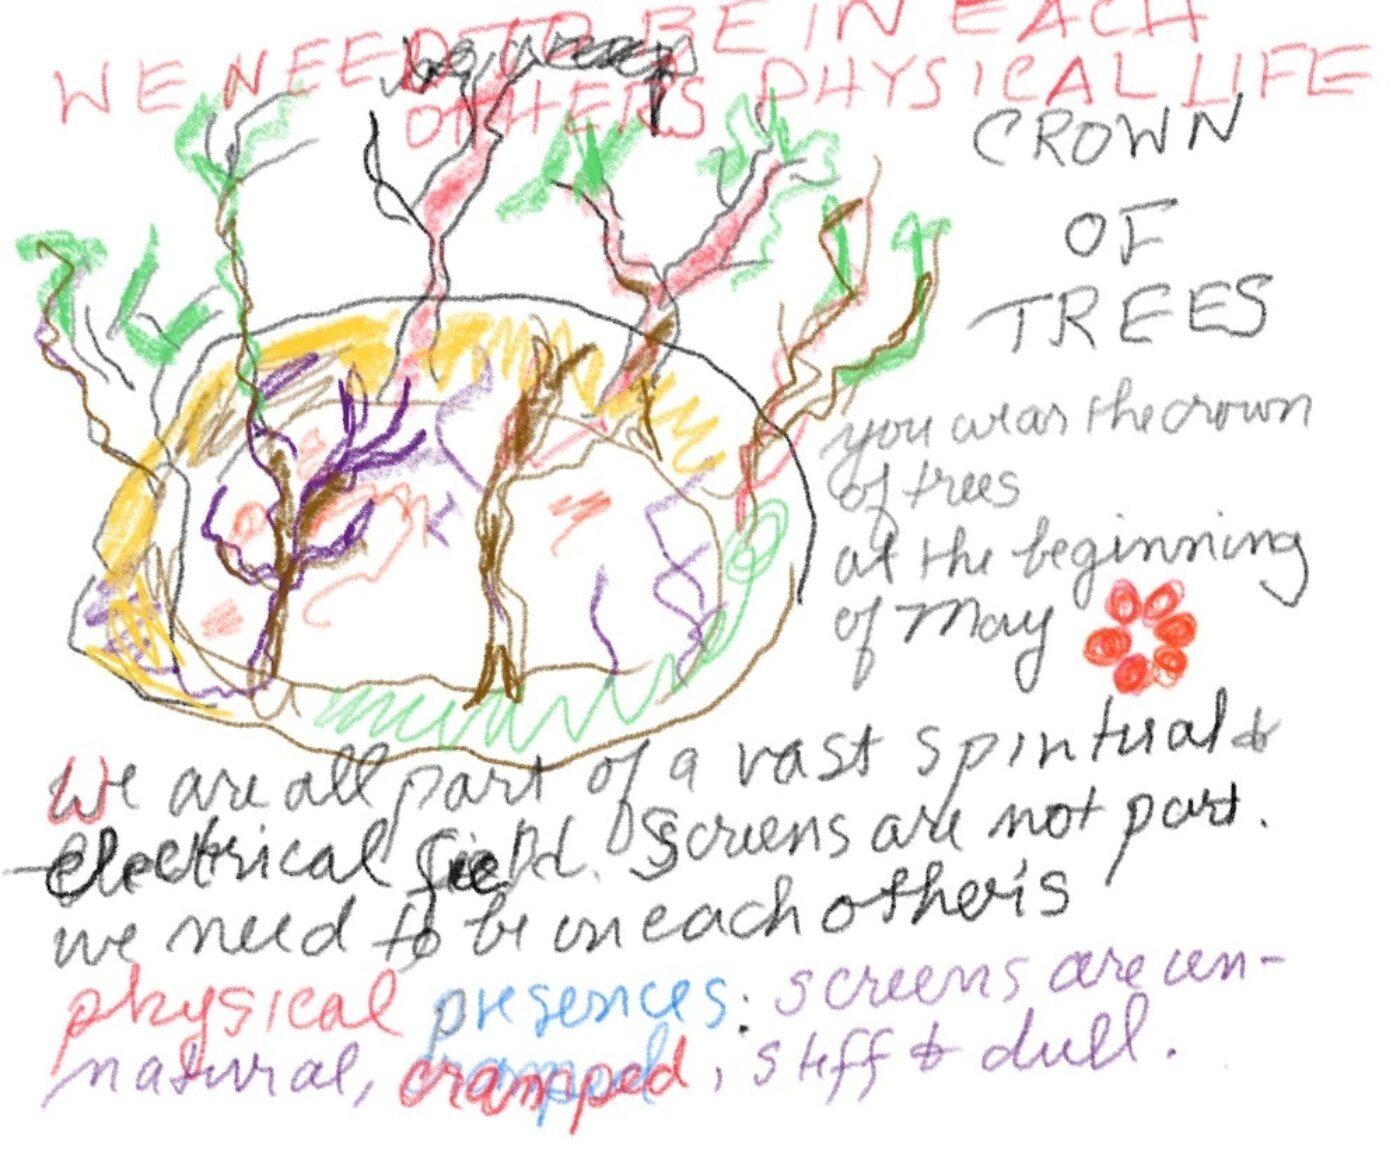 WE NEED TO BE IN EACH
OTHERS PHYSICAL LIFE
CROWN
OF
TREES
you wear the crown
of trees
at the beginning
of May
We are all part of a vast spiritual &
electrical field. Screens are not part.
we need to be in each other's
physical presences: screens are un-
natural, cramped, stiff & dull.